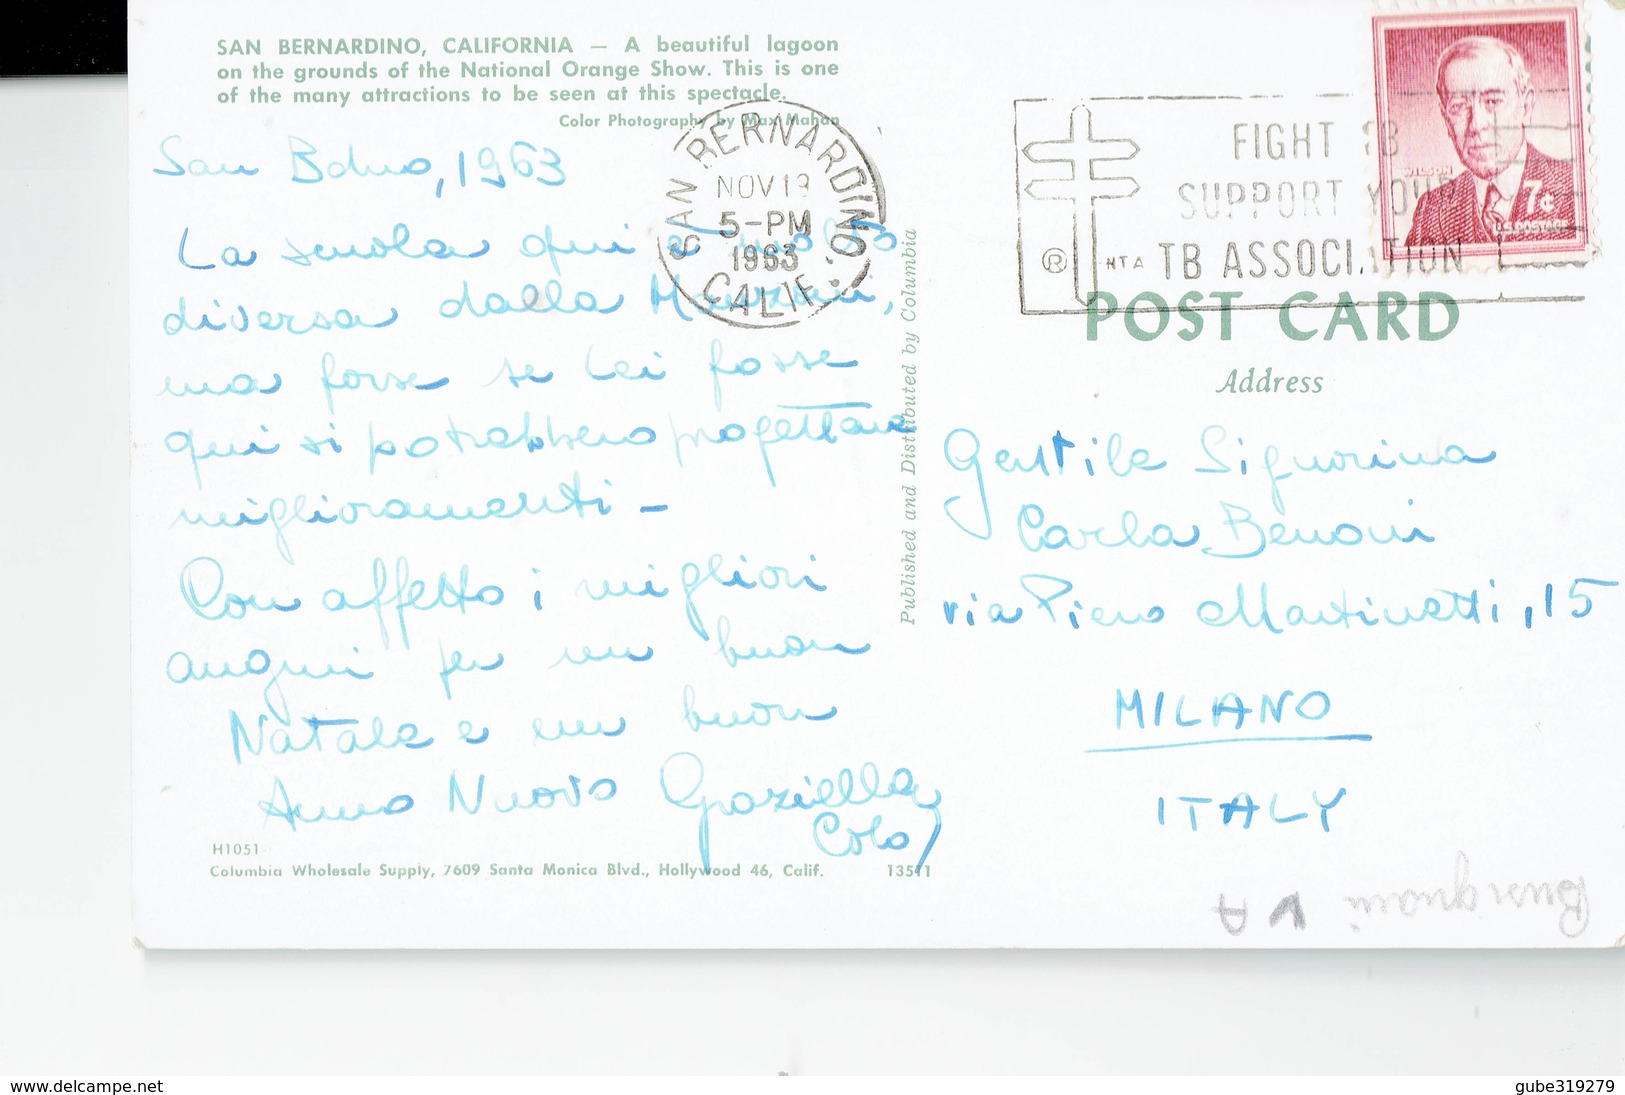 SAN BERNARDINO, CALIFORNIA — A beautiful lagoon
on the grounds of the National Orange Show. This is one
of the many attractions to be seen at this spectacle.
Color Photography by Max Mahan
San Bdno, 1963
La scuola qui è molto
diversa dalla Manzoni,
ma forse se Lei fosse
qui si potrebbero progettare
miglioramenti -
Con affetto i migliori
auguri per un buon
Natale e un buon
Anno Nuovo Graziella
Colo
H1051
Columbia Wholesale Supply, 7609 Santa Monica Blvd., Hollywood 46, Calif. 13511
SAN BERNARDINO
NOV 19
5-PM
1963
CALIF.
Published and Distributed by Columbia
FIGHT TB
SUPPORT YOUR
® NTA TB ASSOCIATION
WILSON
7¢
U.S. POSTAGE
POST CARD
Address
Gentile Signorina
Carla Benoni
via Piero Martinetti, 15
MILANO
ITALY
VA
www.delcampe.net
gube319279